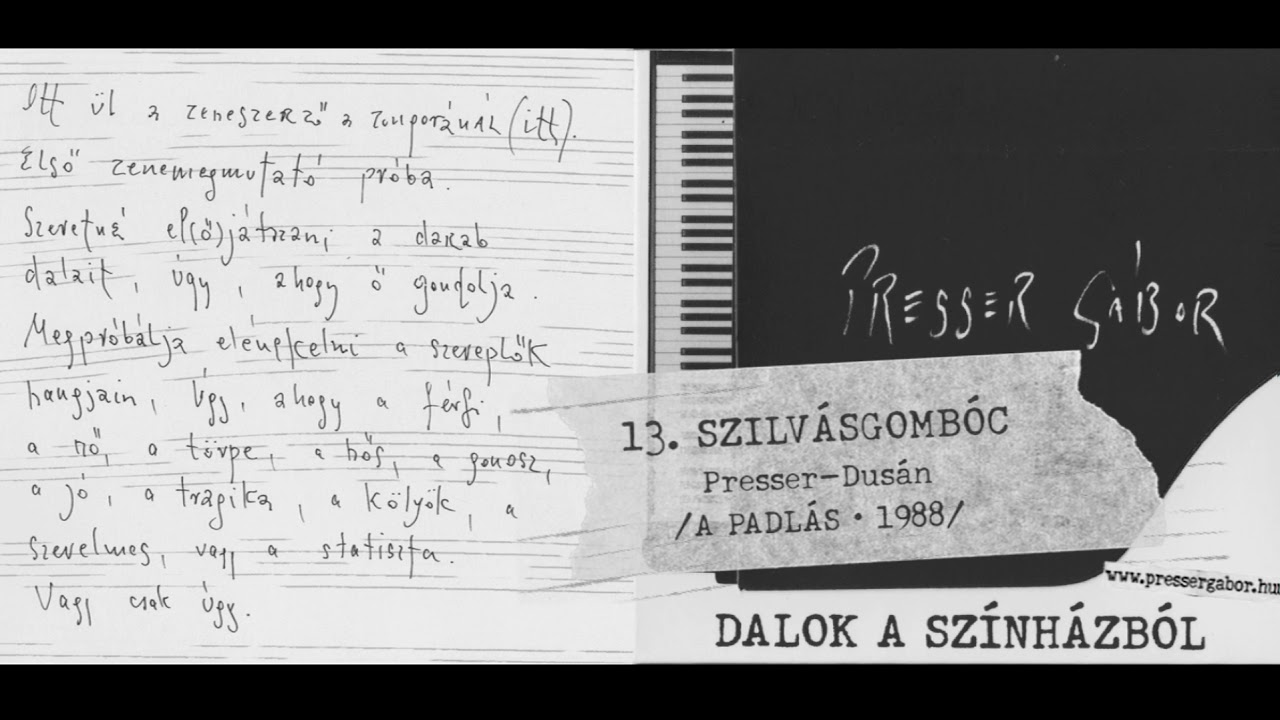 Itt ül a zeneszerző a zongoránál (itt).
Első zenemegmutató próba.
Szeretné el(ő)játszani a darab
dalait, úgy, ahogy ő gondolja.
Megpróbálja elénekelni a szereplők
hangjain, úgy, ahogy a férfi,
a nő, a törpe, a hős, a gonosz,
a jó, a tragika, a kölyök, a
szerelmes, vagy a statiszta.
Vagy csak úgy.
PRESSER GÁBOR
13. SZILVÁSGOMBÓC
Presser-Dusán
/A PADLÁS • 1988/
www.pressergabor.hu
DALOK A SZÍNHÁZBÓL